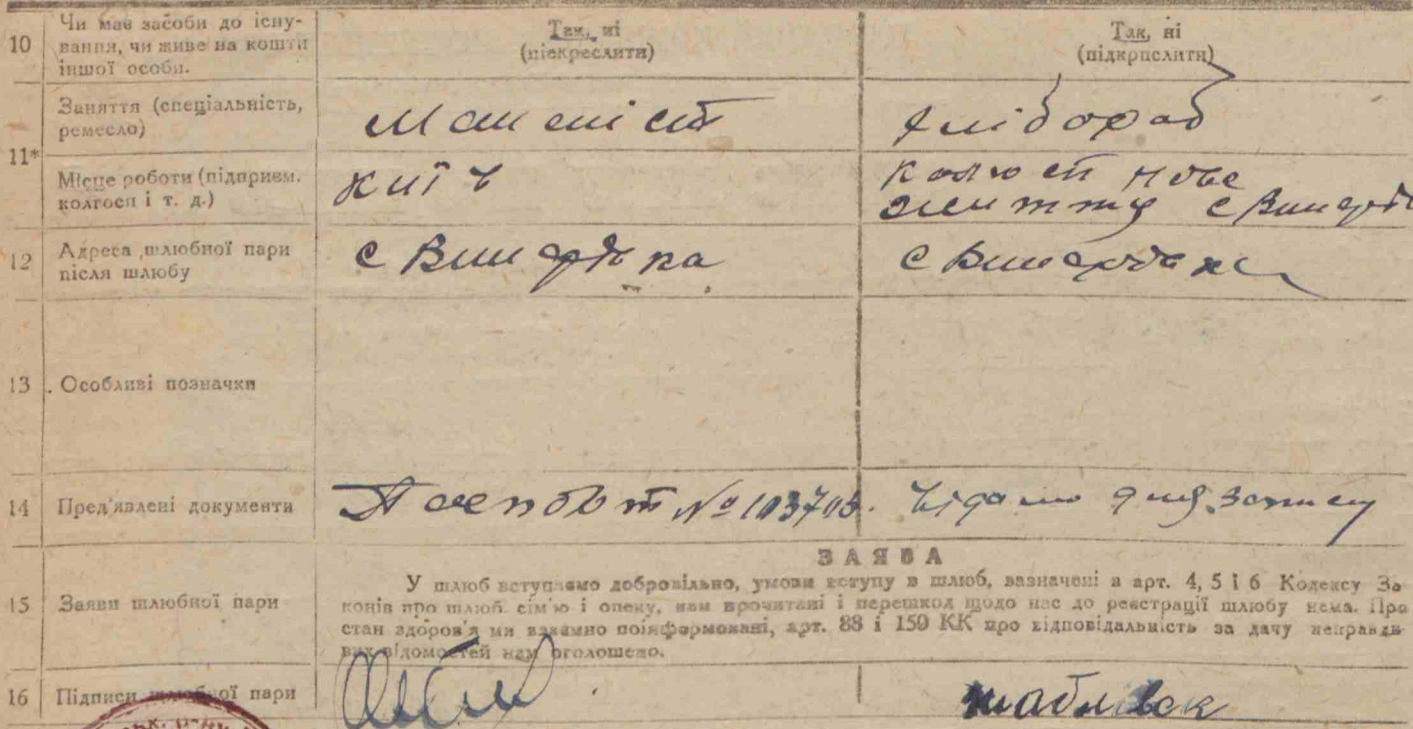 10 Чи має засоби до існу-
вання, чи живе на кошти
іншої особи.
Так, ні
(підкреслити)
Так, ні
(підкрпслити)
11* Заняття (спеціальність,
ремесло)
Машеніст
Хлібороб
Місце роботи (підприєм.
колгосп і т. д.)
Київ
нове
життя с
12 Адреса шлюбної пари
після шлюбу
с
с
13 Особливі позначки
14 Пред'явлені документи
Паспорт № 103705.
15 Заяви шлюбної пари
ЗАЯВА
У шлюб вступаємо добровільно, умови вступу в шлюб, зазначені в арт. 4, 5 і 6 Кодексу За
конів про шлюб. сім'ю і опеку, нам прочитані і перешкод щодо нас до реєстрації шлюбу нема. Про
стан здоров'я ми взаємно поінформовані, арт. 88 і 159 КК про відповідальність за дачу неправди
вих відомостей нам оголошено.
16 Підписи шлюбної пари